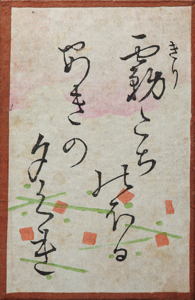 きり
霧たち
のぼる
あきの
夕ぐれ